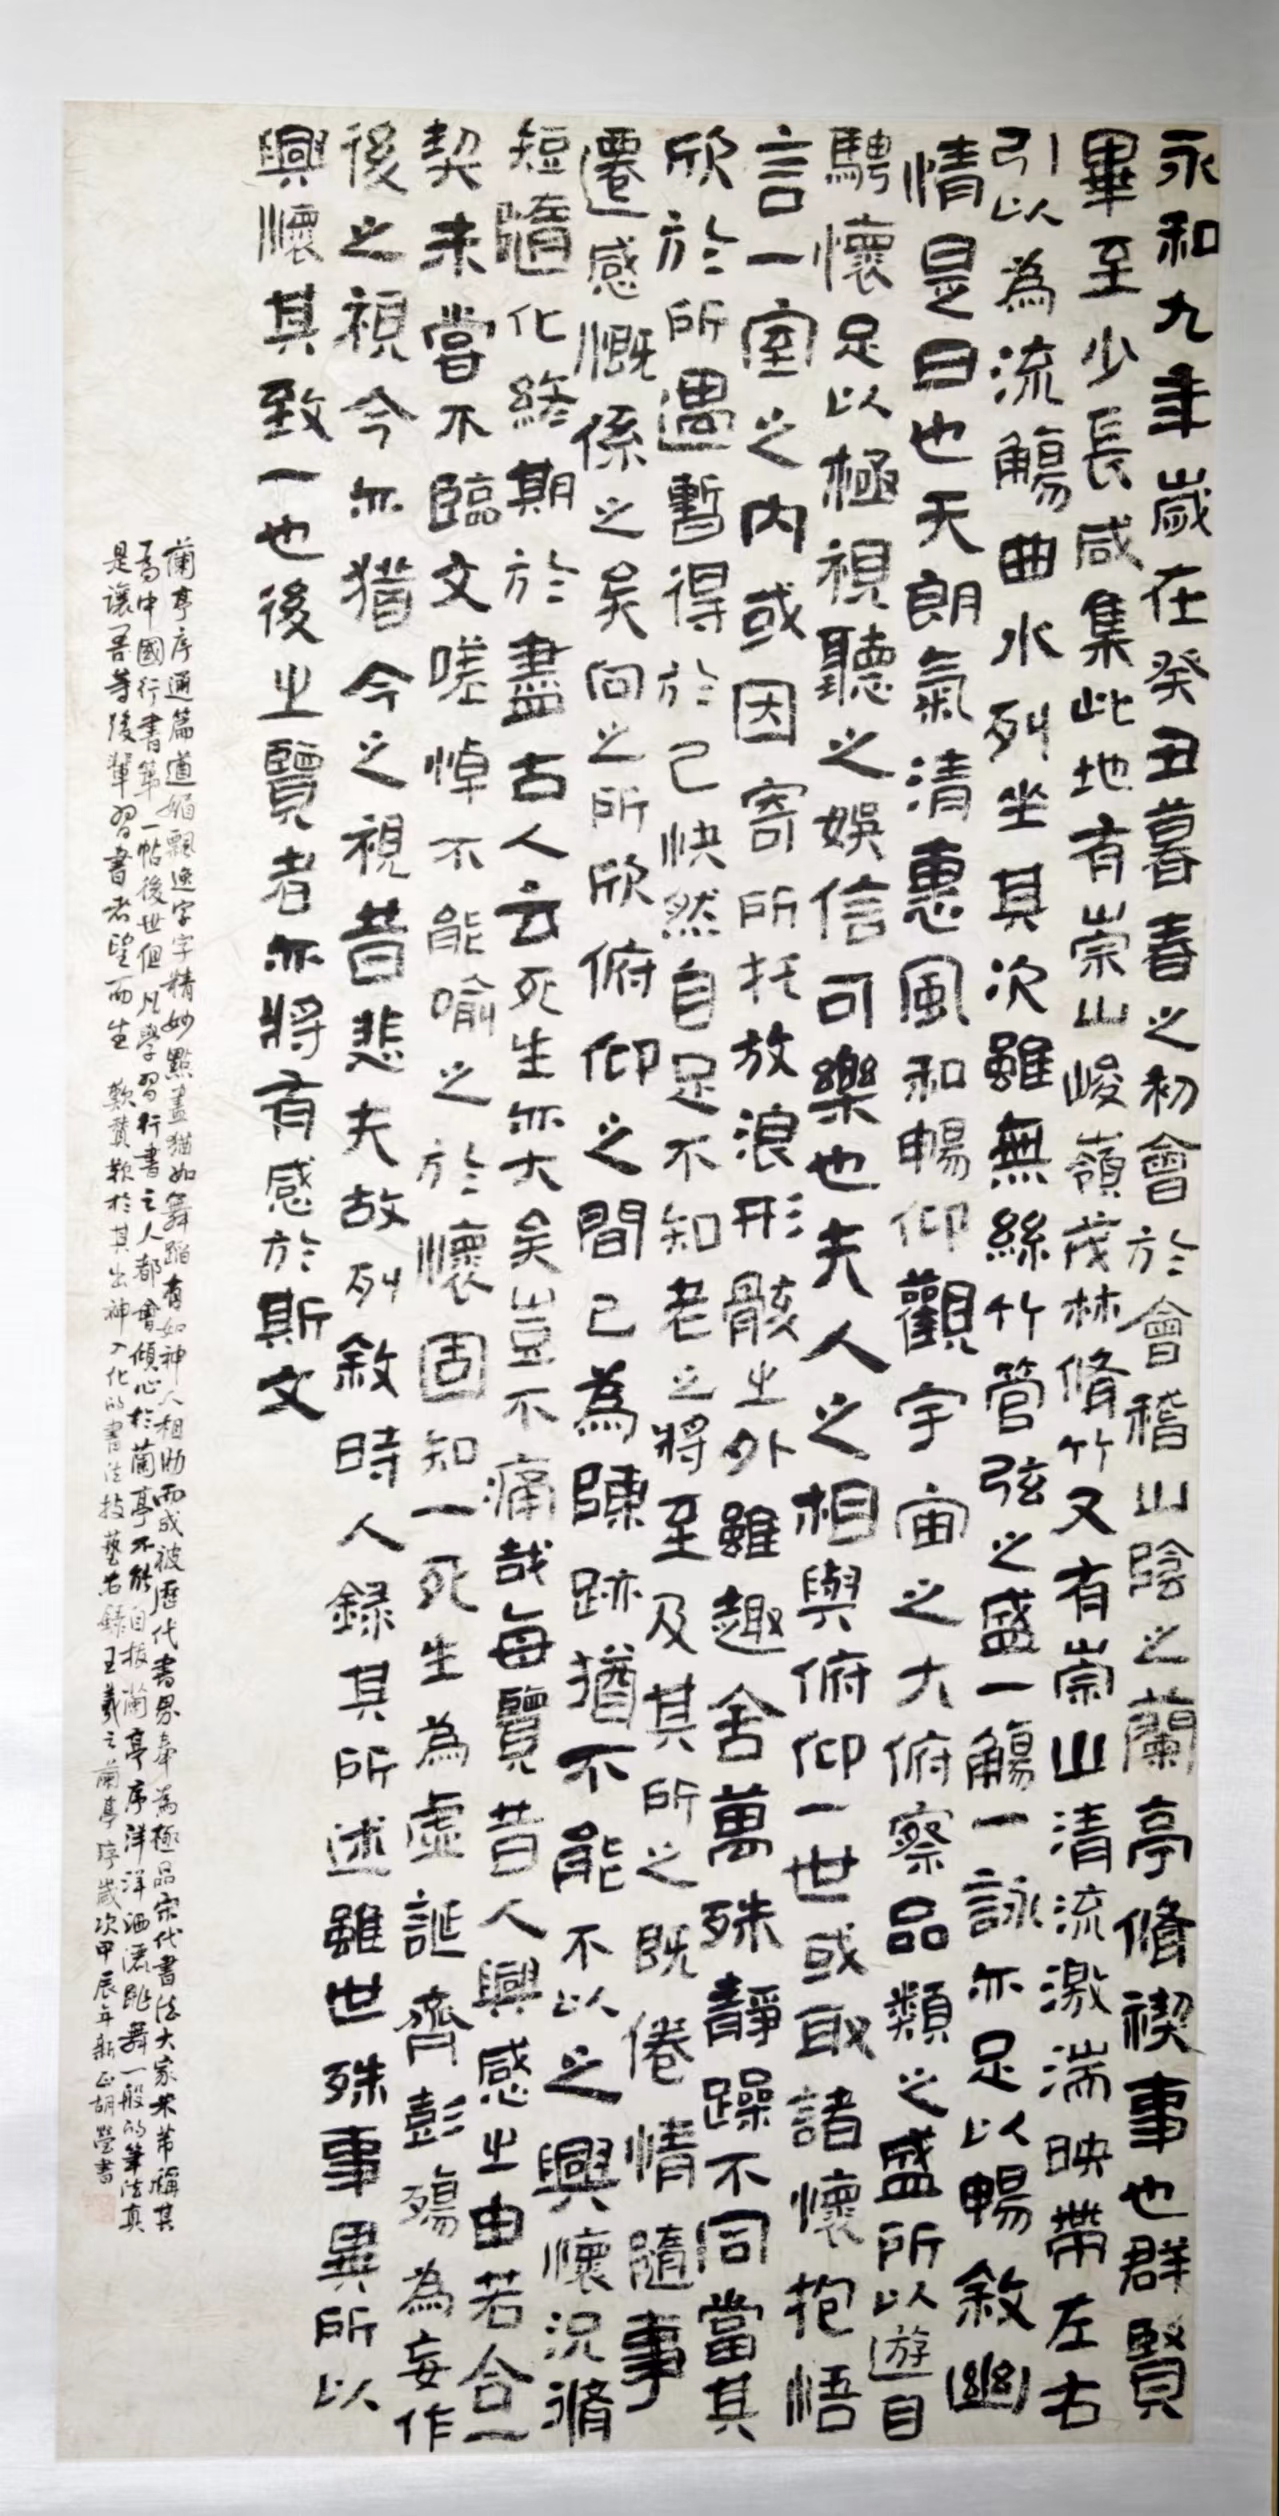 永和九年歲在癸丑暮春之初會於會稽山陰之蘭亭脩禊事也群賢
畢至少長咸集此地有崇山峻嶺茂林脩竹又有崇山清流激湍映帶左右
引以為流觴曲水列坐其次雖無絲竹管弦之盛一觴一詠亦足以暢敘幽
情是日也天朗氣清惠風和暢仰觀宇宙之大俯察品類之盛所以遊目
騁懷足以極視聽之娛信可樂也夫人之相與俯仰一世或取諸懷抱悟
言一室之內或因寄所托放浪形骸之外雖趣舍萬殊靜躁不同當其
欣於所遇暫得於己快然自足不知老之將至及其所之既倦情隨事
遷感慨係之矣向之所欣俯仰之間已為陳跡猶不能不以之興懷況脩
短隨化終期於盡古人云死生亦大矣豈不痛哉每覽昔人興感之由若合一
契未嘗不臨文嗟悼不能喻之於懷固知一死生為虛誕齊彭殤為妄作
後之視今亦猶今之視昔悲夫故列敘時人錄其所述雖世殊事異所以
興懷其致一也後之覽者亦將有感於斯文
蘭亭序通篇遒媚飄逸字字精妙點畫猶如舞蹈有如神人相助而成被歷代書界奉為極品宋代書法大家米芾稱其
為中國行書第一帖後世但凡學習行書之人都會傾心於蘭亭不能自拔蘭亭序洋洋洒洒跳舞一般的筆法真
是讓吾等後輩習書者望而生歎贊歎於其出神入化的書法技藝右錄王羲之蘭亭序歲次甲辰年新正胡瑩書